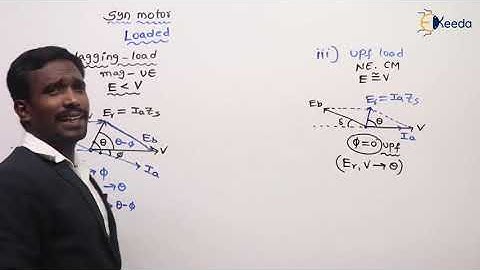 Syn motor
Loaded
lagging-load
mag-υE
E < V
Er = IaZs
Eb
θ
θ-ϕ
V
ϕ
Ia
ϕ
→ θ
θ-ϕ
Ekeeda
iii) upf load
NE. CM
E ≅ V
Eb
Er = IaZs
δ
θ
V
Ia
ϕ=0 upf
(Er, V → θ)